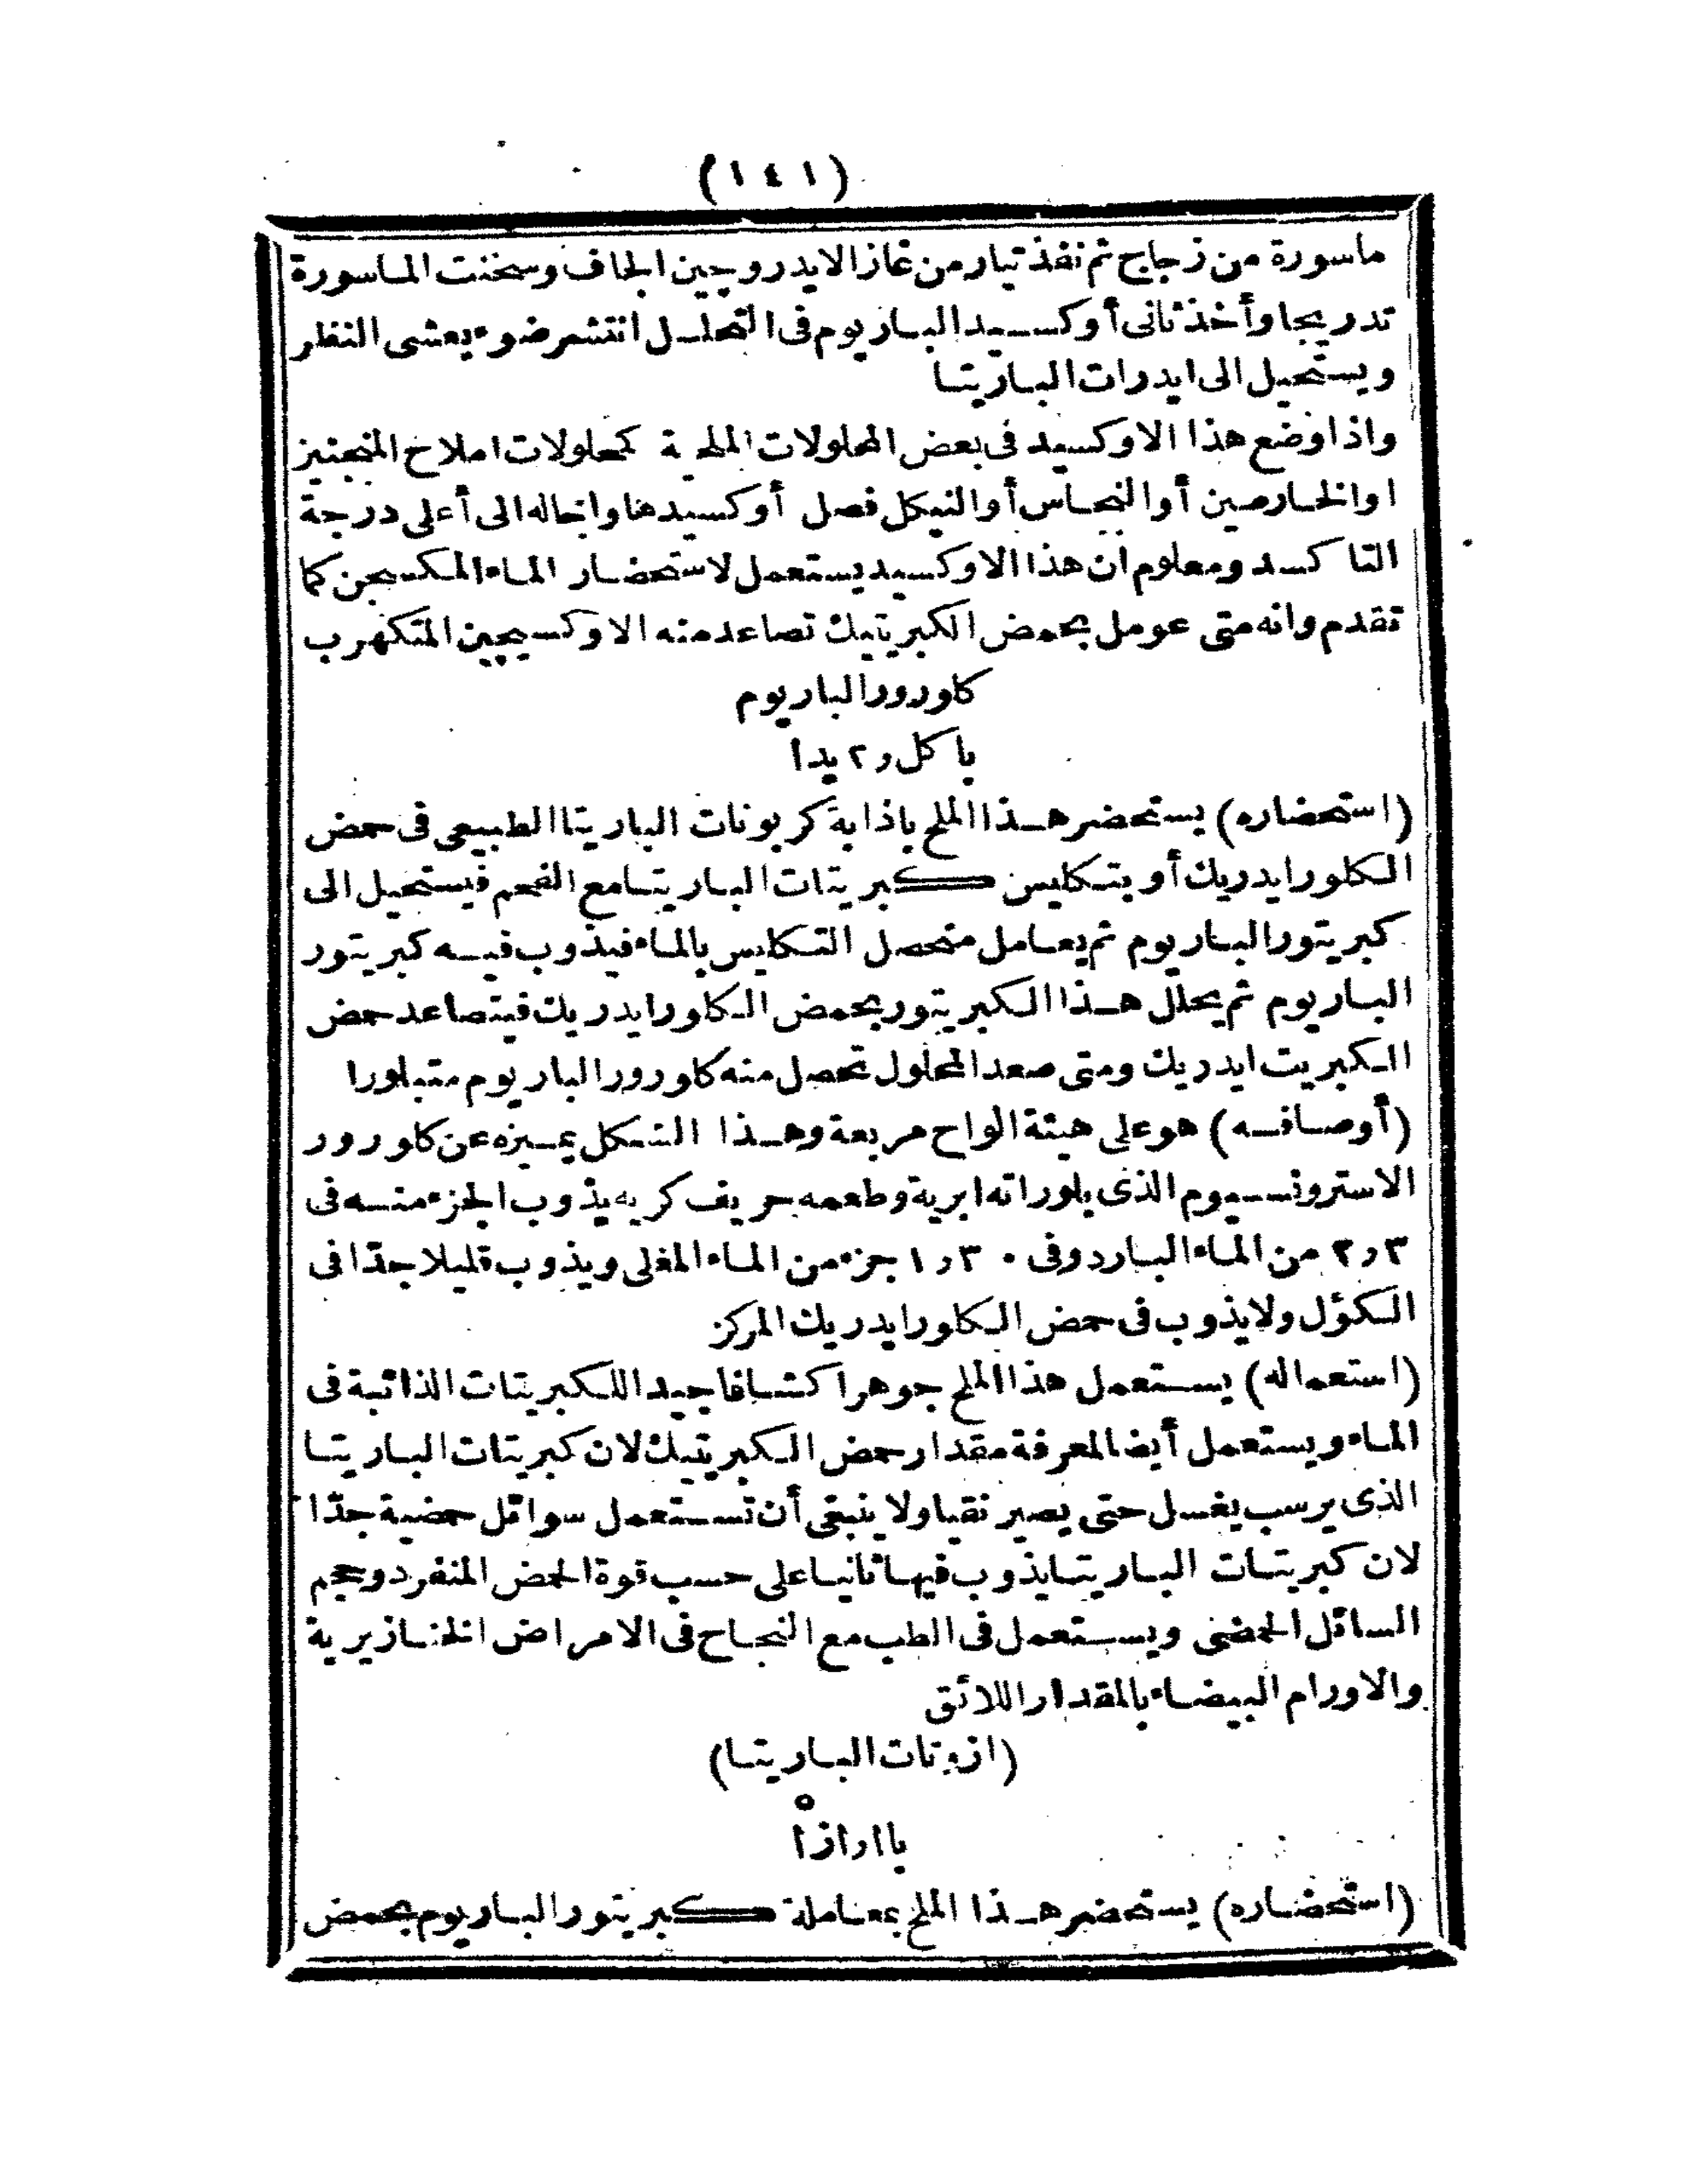 (١٤١)
ماسورة من زجاج ثم نفذ تيار من غاز الايدروجين الجاف وسخنت الماسورة
تدريجا وأخذ ثانى أوكسيد الباريوم فى التحلل انتشر ضوء يعشى النظر
ويستحيل الى ايدرات الباريتا
واذا وضع هذا الاوكسيد فى بعض المحلولات الملحية كمحلولات املاح المنجنيز
اوالخارصين أوالنحاس أوالنيكل فصل أوكسيدها واحاله الى أعلى درجة
التاكسد ومعلوم ان هذا الاوكسيد يستعمل لاستحضار الماء المكسجن كما
تقدم وانه متى عومل بحمض الكبريتيك تصاعد منه الاوكسيجين المتكهرب
كلورور الباريوم
با كل ر٢ يدا
(استحضاره) يستحضر هذا الملح باذابة كربونات الباريتا الطبيعى فى حمض
الكلورايدريك أو بتكليس كبريتات الباريتا مع الفحم فيستحيل الى
كبريتور الباريوم ثم يعامل متحصل التكليس بالماء فيذوب فيه كبريتور
الباريوم ثم يحلل هذا الكبريتور بحمض الكلورايدريك فيتصاعد حمض
الكبريت ايدريك ومتى صعد المحلول تحصل منه كلورور الباريوم متبلورا
(أوصافه) هو على هيئة الواح مربعة وهذا الشكل يميزه عن كلورور
الاسترونسيوم الذى بلوراته ابرية وطعمه حريف كريه يذوب الجزء منه فى
٢ر٣ من الماء البارد وفى ١ر٣٠ جزء من الماء المغلى ويذوب قليلا جدّا فى
الكؤل ولا يذوب فى حمض الكلورايدريك المركز
(استعماله) يستعمل هذا الملح جوهرا كشافا جيدا للكبريتات الذائبة فى
الماء ويستعمل أيضا لمعرفة مقدار حمض الكبريتيك لان كبريتات الباريتا
الذى يرسب يغسل حتى يصير نقيا ولا ينبغى أن تستعمل سوائل حمضية جدّا
لان كبريتات الباريتا يذوب فيها ثانيا على حسب قوة الحمض المنفرد وحجم
السائل الحمضى ويستعمل فى الطب مع النجاح فى الامراض الخنازيرية
والاورام البيضاء بالمقدار اللائق
(ازوتات الباريتا)
با ا ر ازا ٥
(استحضاره) يستحضر هذا الملح بمعاملة كبريتور الباريوم بحمض